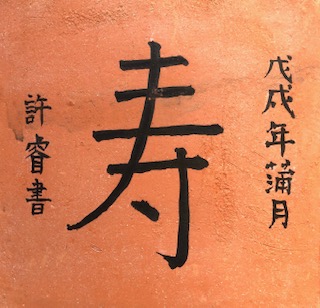 戊戌年蒲月
寿
許睿書